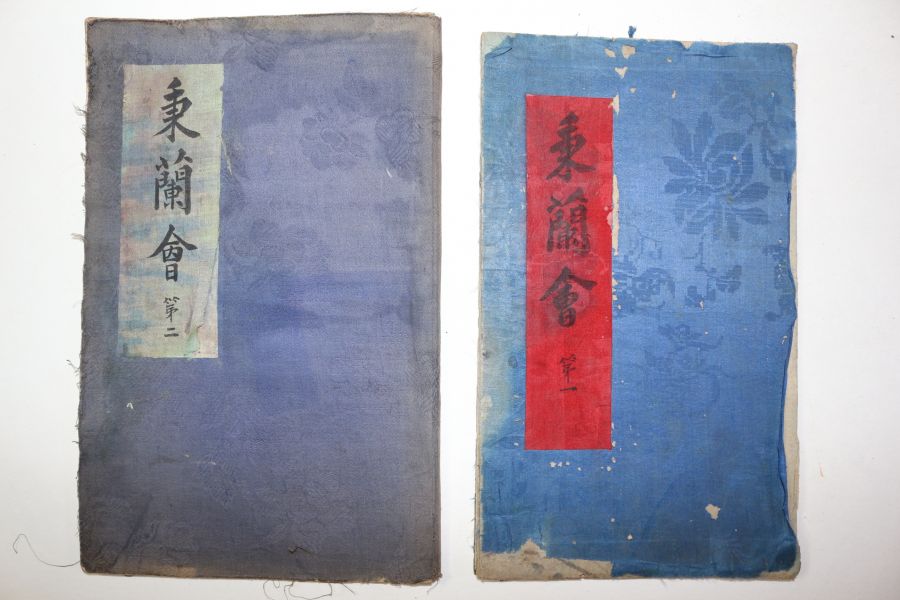 秉蘭會
第二
秉蘭會
第一